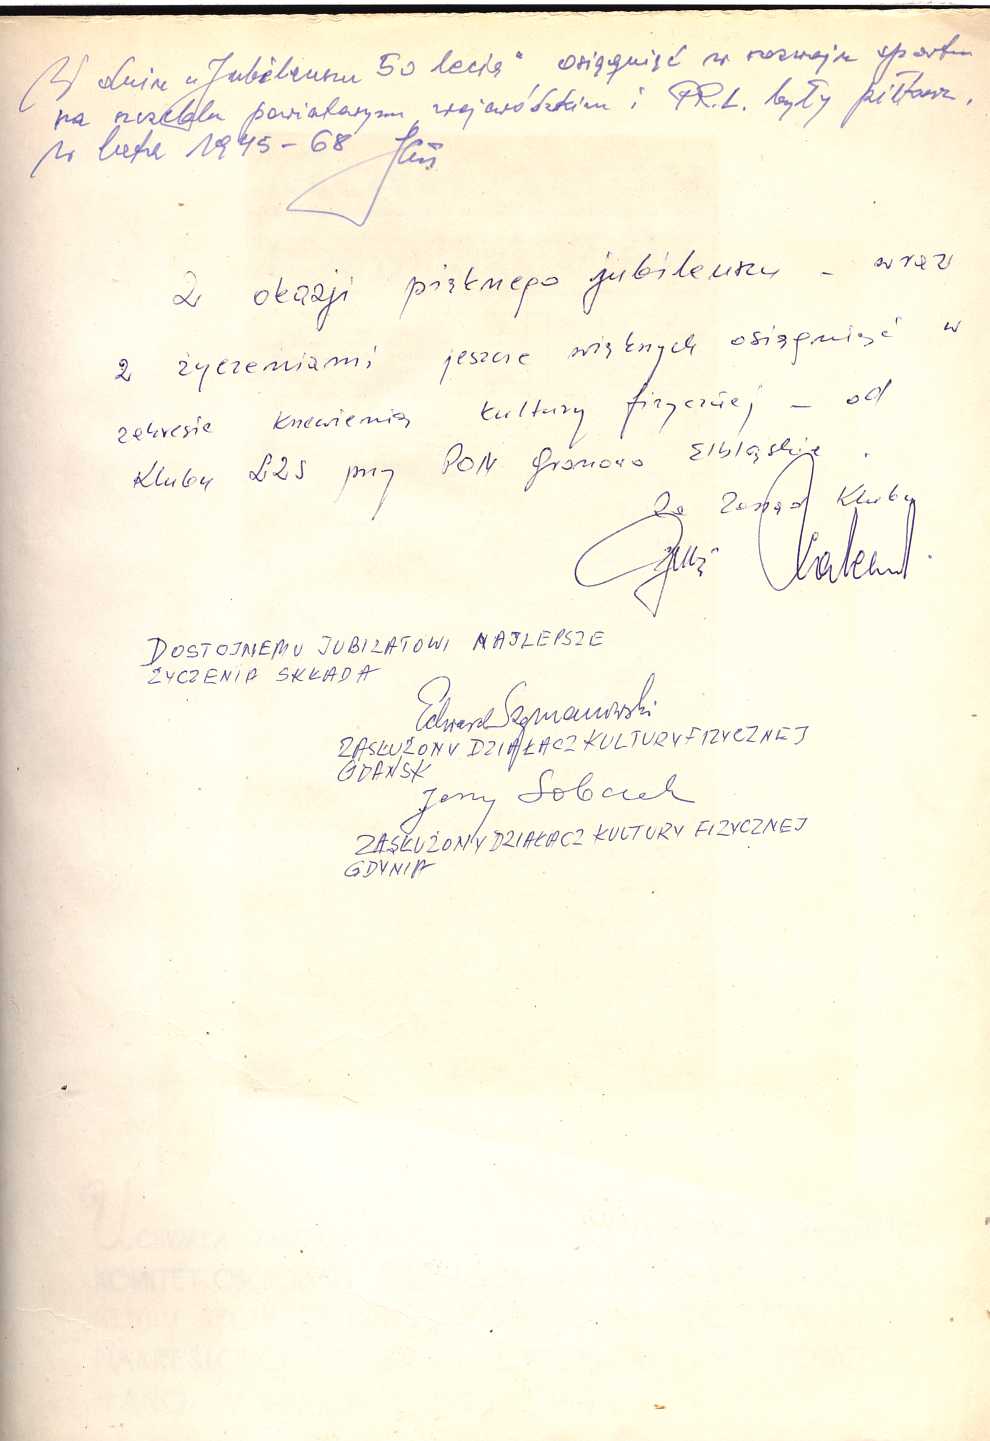 W dniu „Jubileuszu 50 lecia" osiągnięć w rozwoju sportu
na szczeblu powiatowym, wojewódzkim i PRL. były piłkarz.
w latach 1945-68
Z okazji pięknego jubileuszu - wraz
z życzeniami jeszcze większych osiągnięć w
zakresie krzewienia kultury fizycznej - od
Klubu LZS przy POM Gronowo Elbląskie.
Za Zarząd Klubu
DOSTOJNEMU JUBILATOWI NAJLEPSZE
ŻYCZENIA SKŁADA
Edward Szymanowski
ZASŁUŻONY DZIAŁACZ KULTURY FIZYCZNEJ
GDAŃSK
Jerzy Sobczak
ZASŁUŻONY DZIAŁACZ KULTURY FIZYCZNEJ
GDYNIA